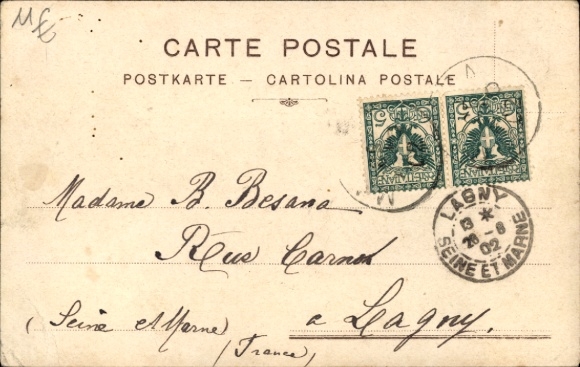 CARTE POSTALE
POSTKARTE — CARTOLINA POSTALE
5 5
Madame B. Besana
Rue Carnot
a Lagny.
(Seine et Marne)
(France)
LAGNY
13 *
26 - 8
02
SEINE ET MARNE